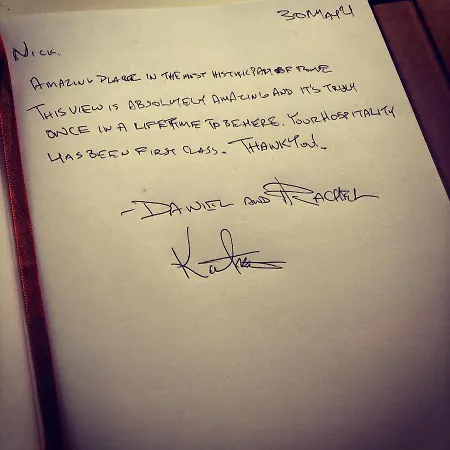 30 MAY 4
NICK.
AMAZING PLACE IN THE MOST HISTORIC PART OF ROME
THIS VIEW IS ABSOLUTELY AMAZING AND IT'S TRULY
ONCE IN A LIFETIME TO BE HERE. YOUR HOSPITALITY
HAS BEEN FIRST CLASS. THANK YOU.
- DANIEL AND RACHEL